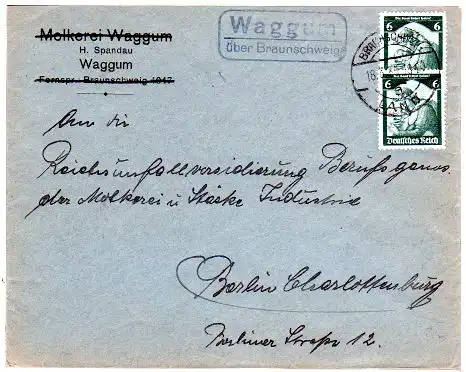 Molkerei Waggum
H. Spandau
Waggum
Fernspr.: Braunschweig 1047
Waggum
über Braunschweig
6
6
Deutsches Reich
BRAUNSCHWEIG
LAND
An die
Reichsunfallversicherung Berufsgenos.
der Molkerei u Stärke Industrie
Berlin Charlottenburg
Berliner Straße 12.